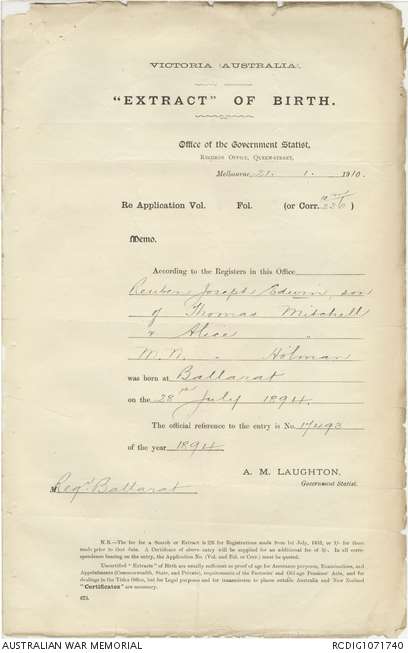 VICTORIA (AUSTRALIA).
"EXTRACT" OF BIRTH.
Office of the Government Statist,
RECORDS OFFICE, QUEEN-STREET,
Melbourne, 21. 1. 1910.
Re Application Vol. Fol. (or Corr. 226)
Memo.
According to the Registers in this Office
Reuben Joseph Edwin, son
of Thomas Mitchell
& Alice "
M.N. " Holman
was born at Ballarat
on the 28th July 1894.
The official reference to the entry is No. 17493
of the year 1894
A. M. LAUGHTON,
Government Statist.
Regr. Ballarat
N.B.—The fee for a Search or Extract is 2/6 for Registrations made from 1st July, 1853, or 5/- for those
made prior to that date. A Certificate of above entry will be supplied for an additional fee of 5/-. In all corre-
spondence bearing on the entry, the Application No. (Vol. and Fol. or Corr.) must be quoted.
Uncertified "Extracts" of Birth are usually sufficient as proof of age for Assurance purposes, Examinations, and
Appointments (Commonwealth, State, and Private), requirements of the Factories' and Old-age Pensions' Acts, and for
dealings in the Titles Office, but for Legal purposes and for transmission to places outside Australia and New Zealand
"Certificates" are necessary.
675.
AUSTRALIAN WAR MEMORIAL
RCDIG1071740